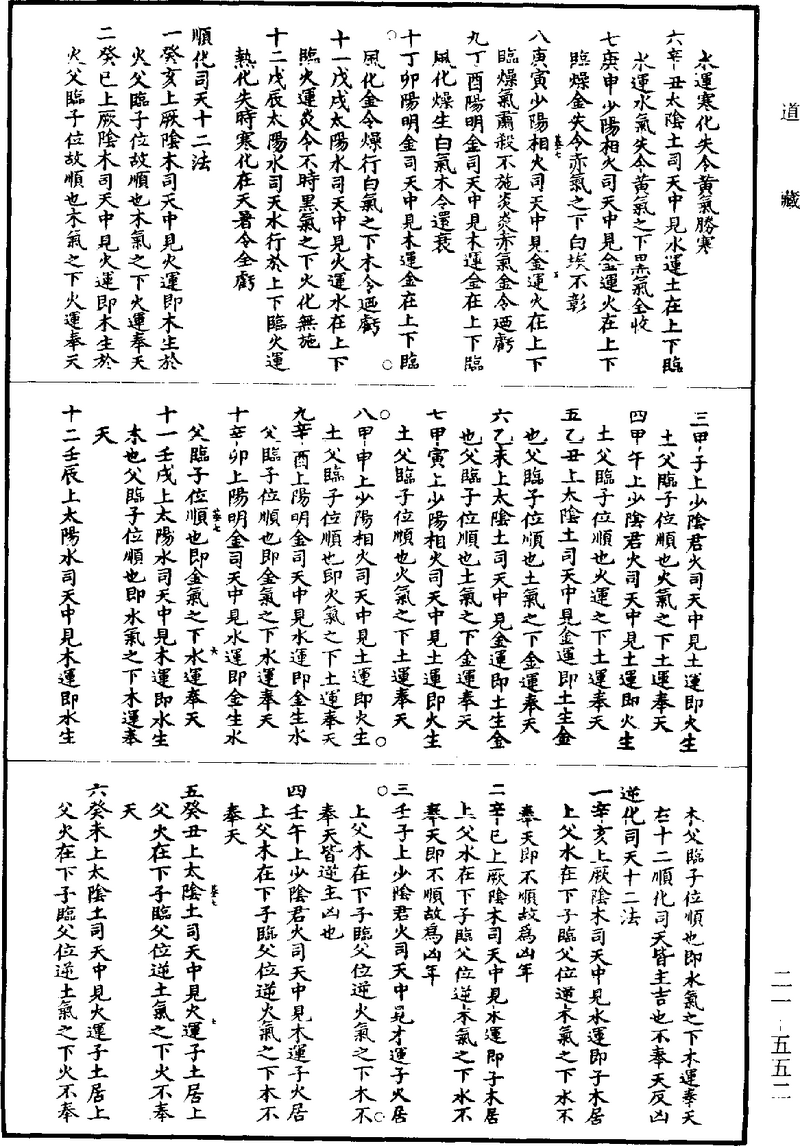 道藏
水運寒化失令黃氣勝寒
六辛丑太陰土司天中見水運土在上下臨
水運水氣失令黃氣之下黑氣全收
七庚申少陽相火司天中見金運火在上下
臨燥金失令赤氣之下白埃不彰
八庚寅少陽相火司天中見金運火在上下
臨燥氣肅殺不施炎炎赤氣金令廼虧
九丁酉陽明金司天中見木運金在上下臨
風化燥生白氣木令還衰
十丁卯陽明金司天中見木運金在上下臨
風化金令燥行白氣之下木令廼虧
十一戊戌太陽水司天中見火運水在上下
臨火運炎令不時黑氣之下火化無施
十二戊辰太陽水司天水行於上下臨火運
熱化失時寒化在天暑令全虧
順化司天十二法
一癸亥上厥陰木司天中見火運即木生於
火父臨子位故順也木氣之下火運奉天
二癸巳上厥陰木司天中見火運即木生於
火父臨子位故順也木氣之下火運奉天
三甲子上少陰君火司天中見土運即火生
土父臨子位順也火氣之下土運奉天
四甲午上少陰君火司天中見土運即火生
土父臨子位順也火運之下土運奉天
五乙丑上太陰土司天中見金運即土生金
也父臨子位順也土氣之下金運奉天
六乙未上太陰土司天中見金運即土生金
也父臨子位順也土氣之下金運奉天
七甲寅上少陽相火司天中見土運即火生
土父臨子位順也火氣之下土運奉天
八甲申上少陽相火司天中見土運即火生
土父臨子位順也即火氣之下土運奉天
九辛酉上陽明金司天中見水運即金生水
父臨子位順也即金氣之下水運奉天
十辛卯上陽明金司天中見水運即金生水
父臨子位順也即金氣之下水運奉天
十一壬戌上太陽水司天中見木運即水生
木也父臨子位順也即水氣之下木運奉
天
十二壬辰上太陽水司天中見木運即水生
木父臨子位順也即水氣之下木運奉天
右十二順化司天皆主吉也不奉天反凶
逆化司天十二法
一辛亥上厥陰木司天中見水運即子木居
上父水在下子臨父位逆木氣之下水不
奉天即不順故為凶年
二辛巳上厥陰木司天中見水運即子木居
上父水在下子臨父位逆木氣之下水不
奉天即不順故為凶年
三壬子上少陰君火司天中見木運子火居
上父木在下子臨父位逆火氣之下木不
奉天皆逆主凶也
四壬午上少陰君火司天中見木運子火居
上父木在下子臨父位逆火氣之下木不
奉天
五癸丑上太陰土司天中見火運子土居上
父火在下子臨父位逆土氣之下火不奉
天
六癸未上太陰土司天中見火運子土居上
父火在下子臨父位逆土氣之下火不奉
二一-五五二